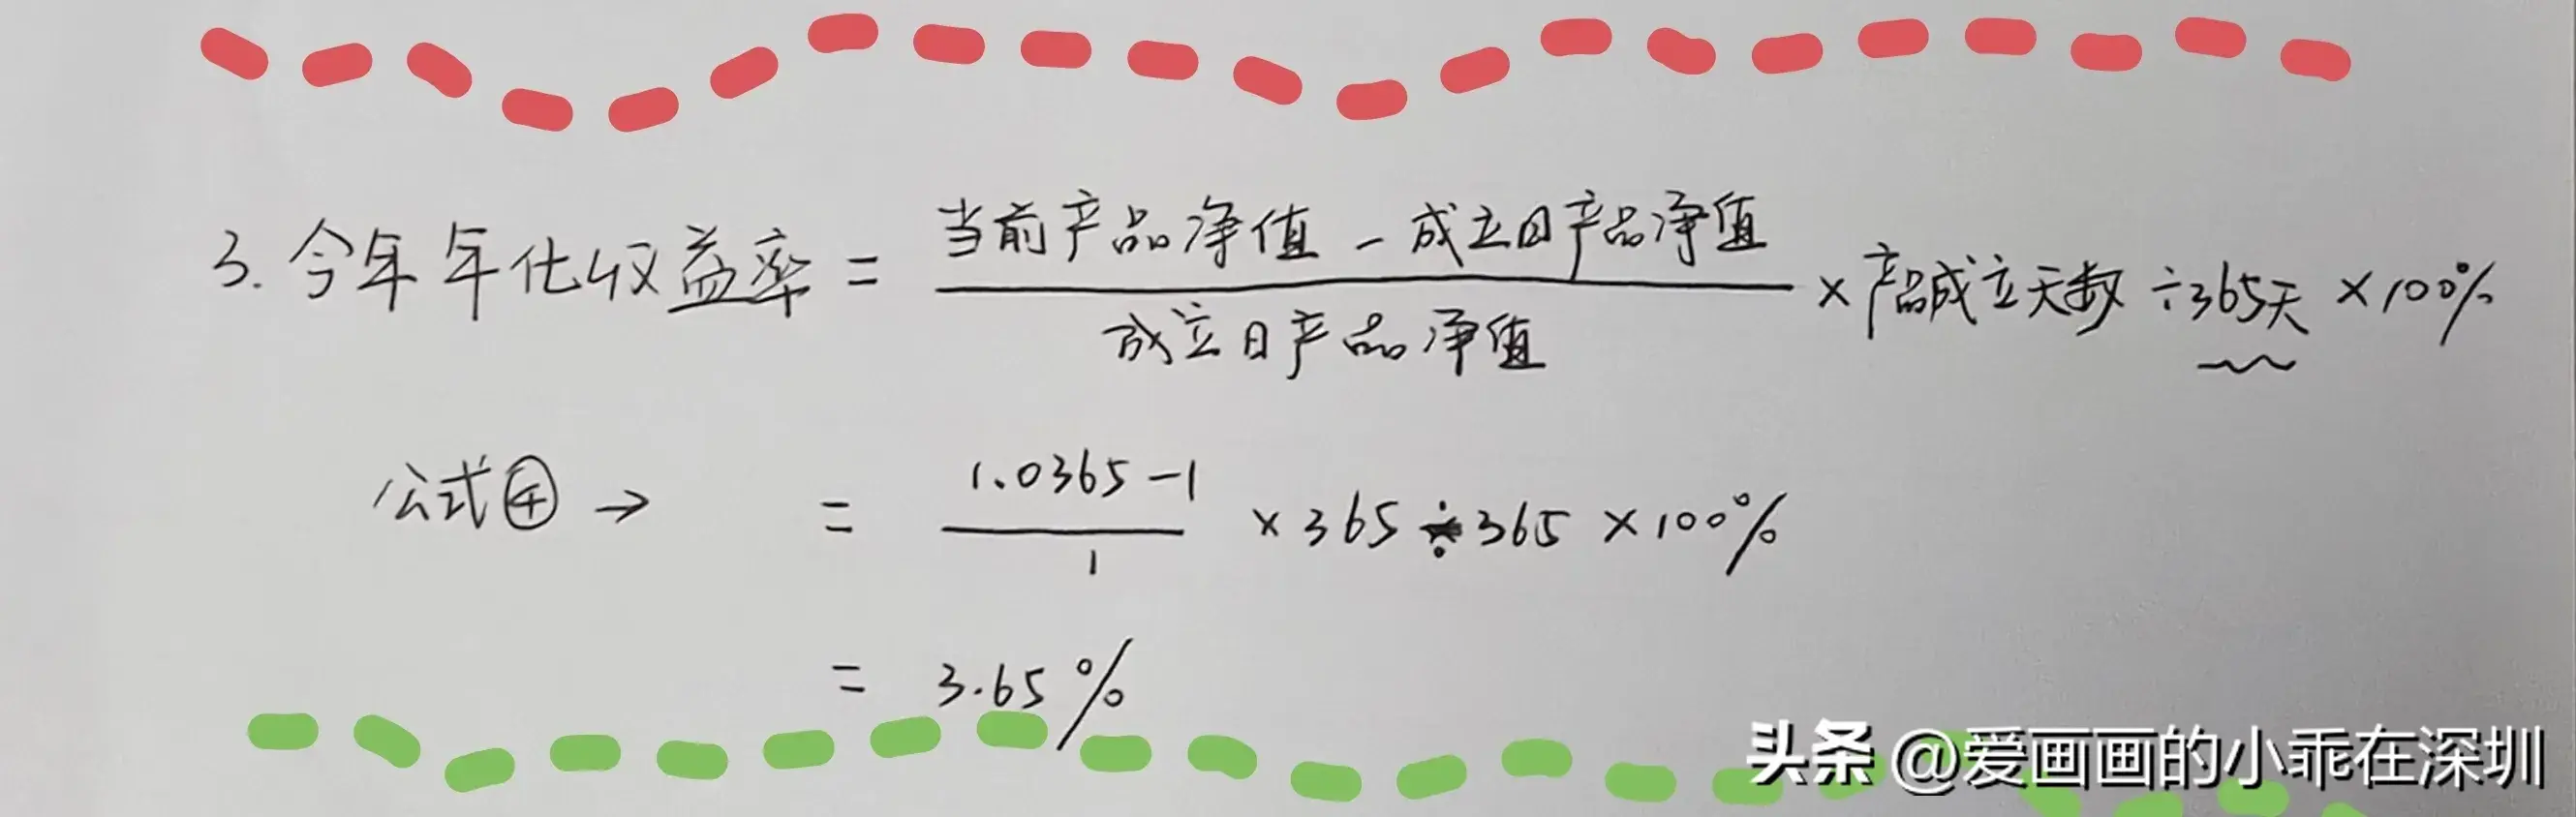 3.今年年化收益率=当前产品净值-成立日产品净值/成立日产品净值×产品成立天数÷365天×100%
公式④→ =1.0365-1/1×365÷365×100%
=3.65%
头条@爱画画的小乖在深圳